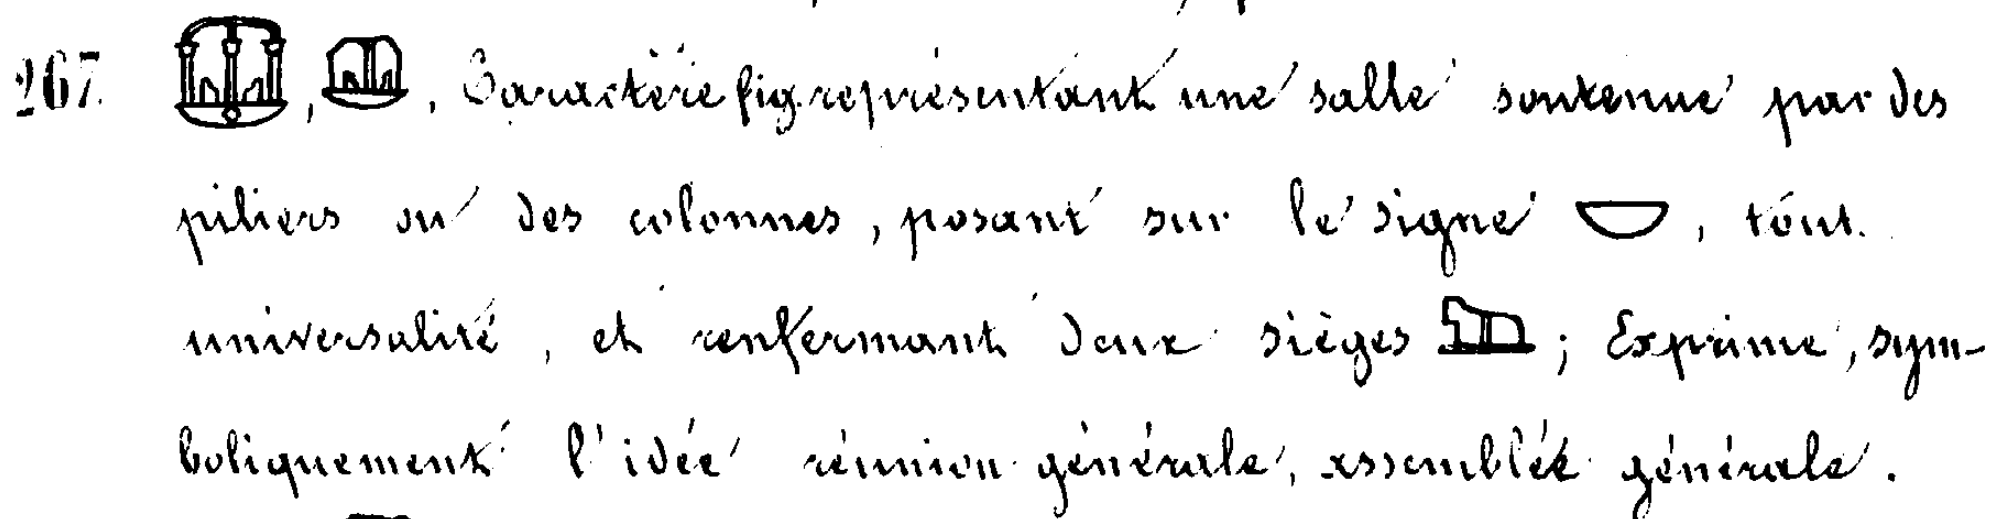 267. 𓎱, 𓎱. Caractère fig. représentant une salle soutenue par des
piliers ou des colonnes, posant sur le signe 𓎟, tout.
universalité, et renfermant deux sièges ; Exprime, sym-
boliquement l'idée réunion générale, assemblée générale.